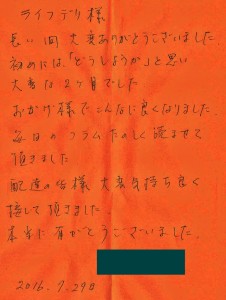 ライフデリ様
長い間 大変ありがとうございました
初めには、「どうしようか」と思い
大変な2ヶ月でした
おかげ様でこんなに良くなりました。
毎日のコラムたのしく読ませて
頂きました
配達の皆様 大変気持ち良く
接して頂きました。
本当に有がとうございました。
2016.9.29日